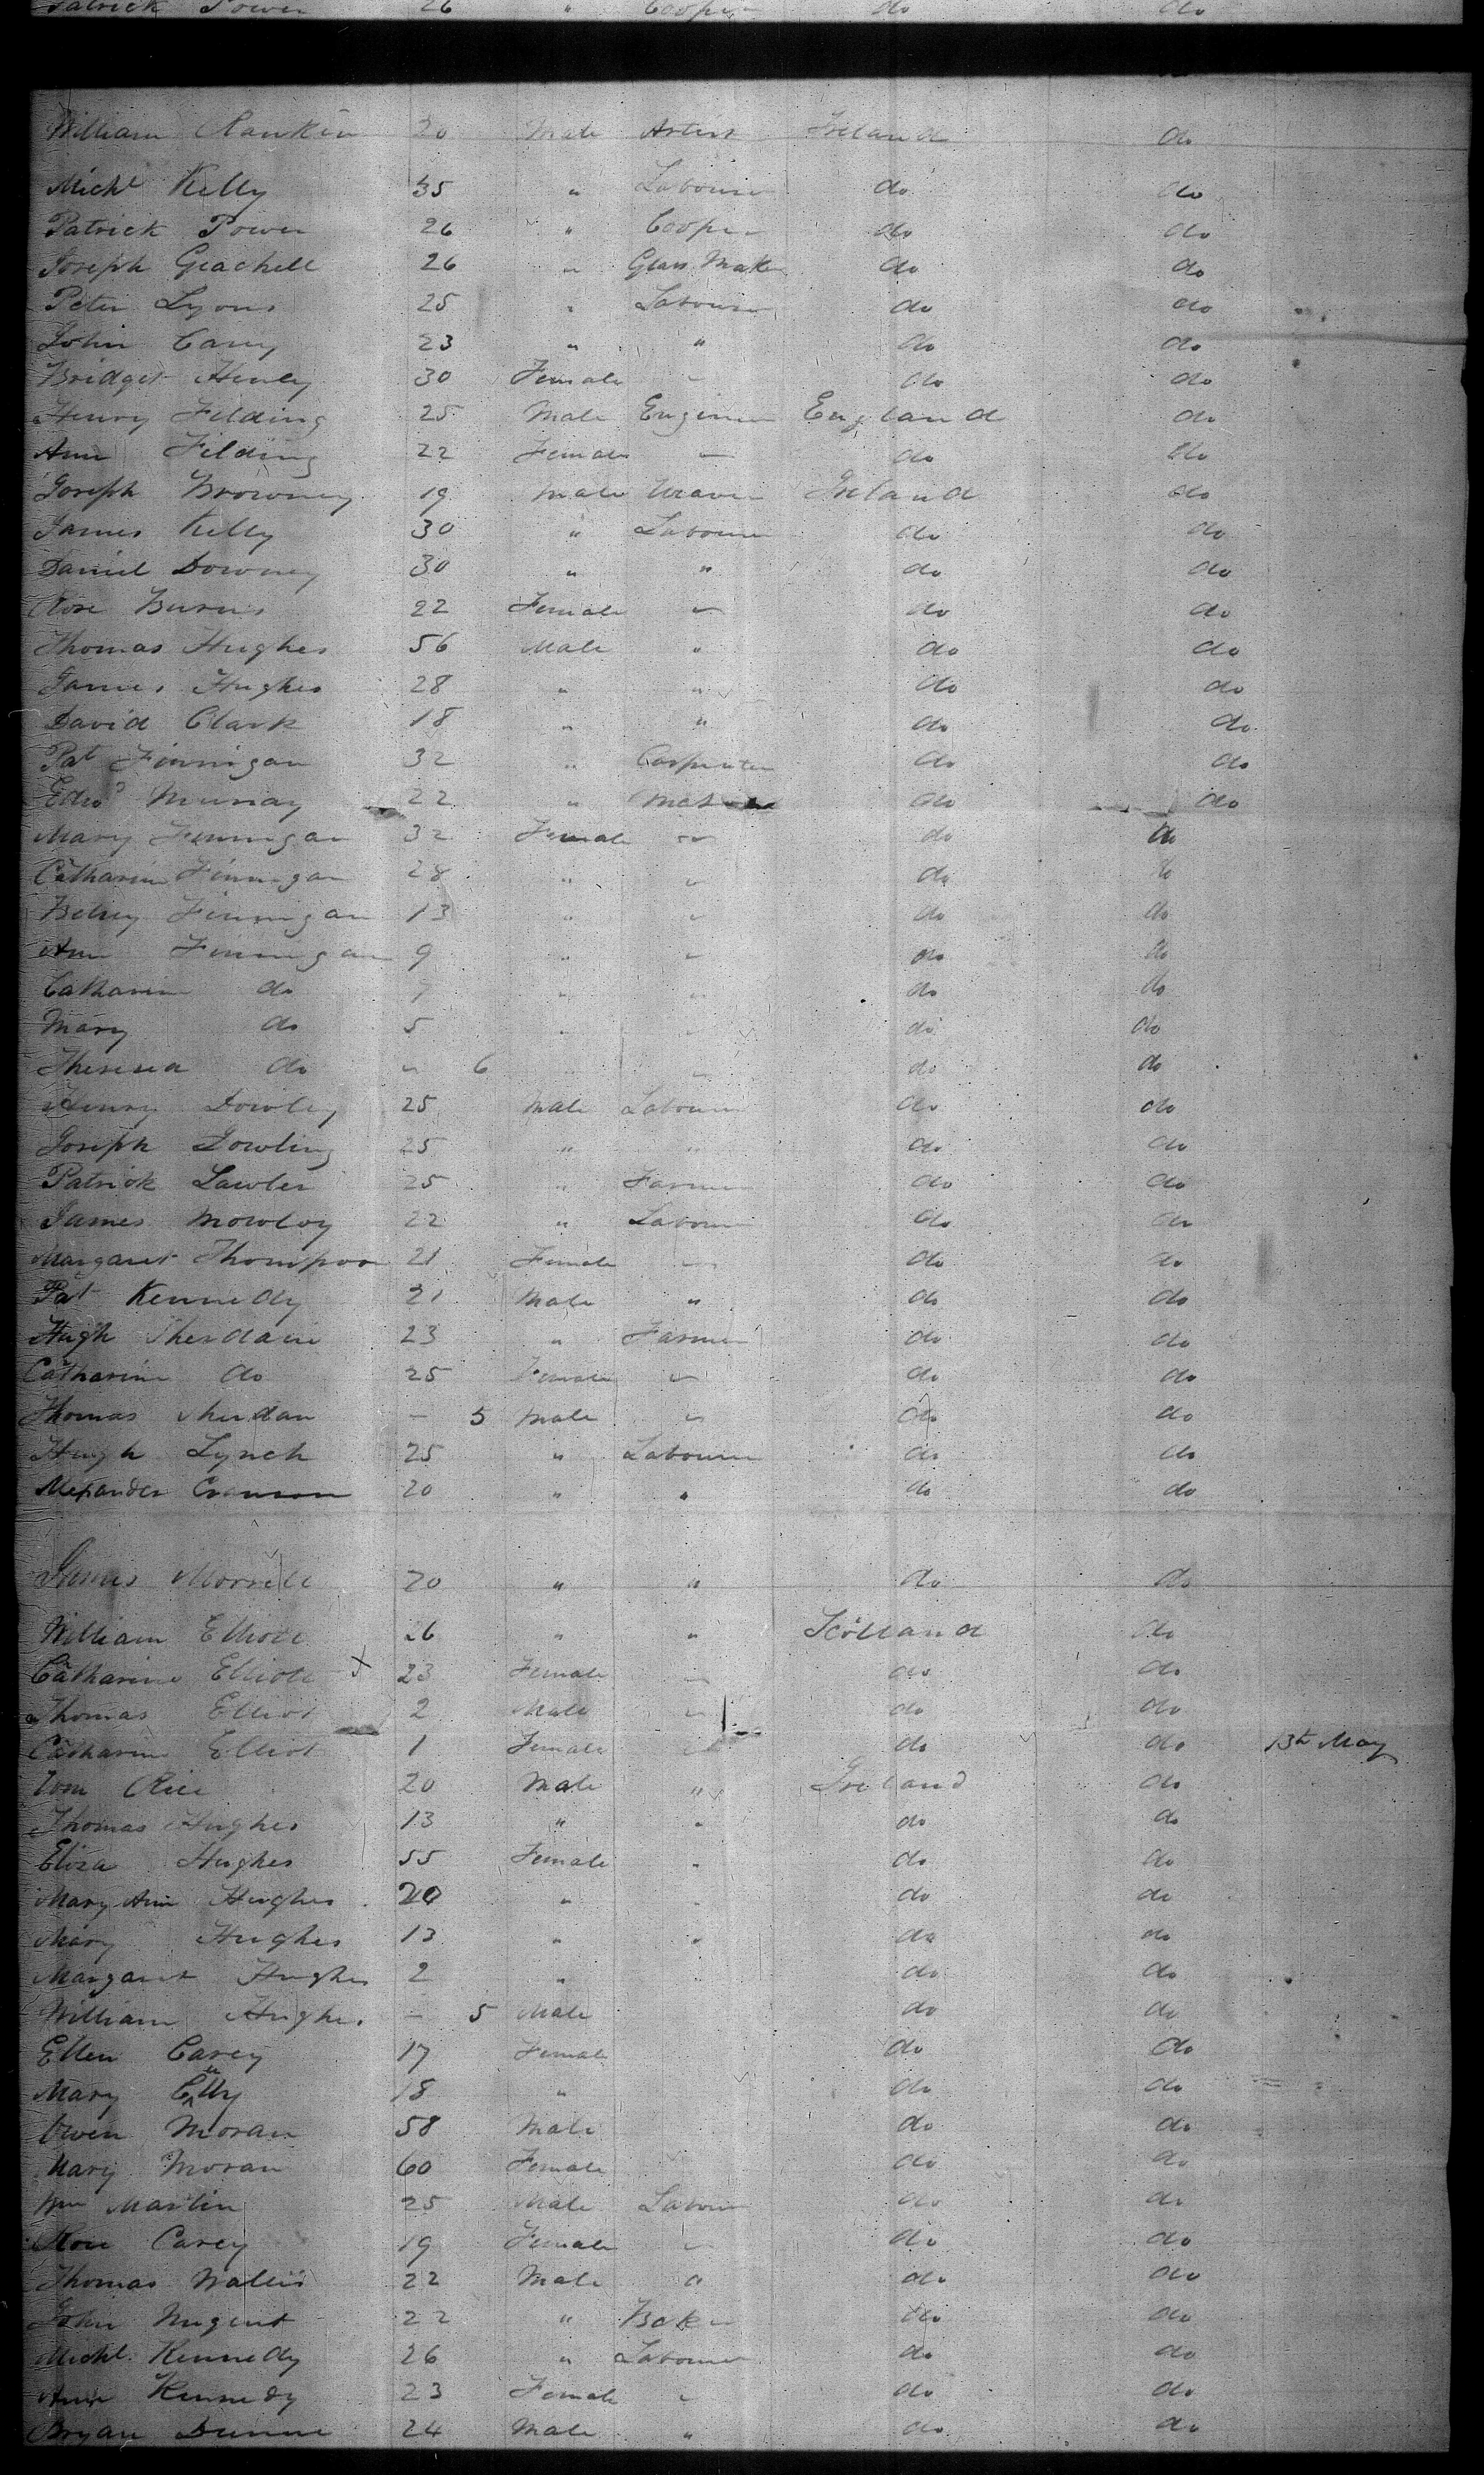 Patrick Power 26 " Cooper do do
William Rankin 20 Male Artist Ireland do
Michl Kelly 35 " Labourer do do
Patrick Power 26 " Cooper do do
Joseph Geachell 26 " Glass Maker do do
Peter Lyons 25 " Labourer do do
John Carey 23 " " do do
Bridget Henley 30 Female " do do
Henry Filding 25 Male Engineer England do
Ann Filding 22 Female " do do
Joseph Browney 19 Male Weaver Ireland do
James Kelly 30 " Labourer do do
Daniel Downey 30 " " do do
Rose Burns 22 Female " do do
Thomas Hughes 56 Male " do do
James Hughes 28 " " do do
David Clark 18 " " do do
Pat Finnigan 32 " Carpenter do do
Edwd Murray 22 " Mason do do
Mary Finnigan 32 Female " do do
Catharine Finnigan 28 " " do do
Betsey Finnigan 13 " " do do
Ann Finnigan 9 " " do do
Catharine do 7 " " do do
Mary do 5 " " do do
Theresea do " 6 " " do do
Henry Dowley 25 Male Labourer do do
Joseph Dowling 25 " " do do
Patrick Lawler 25 " Farmer do do
James Mowloy 22 " Labourer do do
Margaret Thompson 21 Female " do do
Pat Kennedy 21 Male " do do
Hugh Sherdain 23 " Farmer do do
Catharine do 25 Female " do do
Thomas Sherdan - 5 Male " do do
Hugh Lynch 25 " Labourer do do
Alexander 20 " " do do
James Morrell 20 " " do do
William Elliott 26 " " Scotland do
Catharine Elliott x 23 Female " do do
Thomas Elliot 2 Male " do do
Catharine Elliot 1 Female " do do 13th May
Tom Rice 20 Male " Ireland do
Thomas Hughes 13 " " do do
Eliza Hughes 55 Female " do do
Mary Ann Hughes 20 " " do do
Mary Hughes 13 " " do do
Margaret Hughes 2 " do do
William Hughes - 5 Male do do
Ellen Carey 17 Female do do
Mary 18 " do do
Owen Moran 58 Male do do
Mary Moran 60 Female do do
Wm Martin 25 Male Labourer do do
Rose Carey 19 Female " do do
Thomas Wallis 22 Male " do do
John Nugent 22 " Baker do do
Michl. Kennedy 26 " Labourer do do
Ann Kennedy 23 Female " do do
Bryan Dunne 24 Male " do do